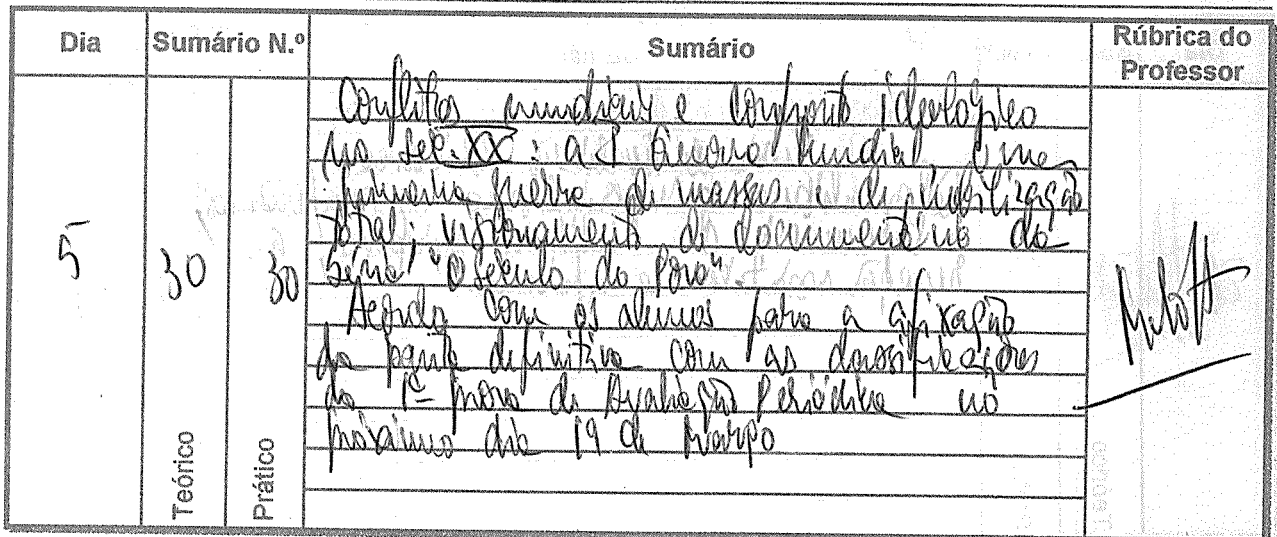 Dia Sumário N.º Sumário Rúbrica do Professor
Conflitos mundiais e confronto ideológico
no séc. XX: a I Guerra Mundial, uma
primeira guerra de massas e de mobilização
total; visionamento de documentário da
série "O Século do Povo".
Acordo com os alunos para a afixação
da pauta definitiva com as classificações
da 1ª prova de Avaliação Periódica no
próximo dia 19 de Março
5
30
30
Teórico
Prático